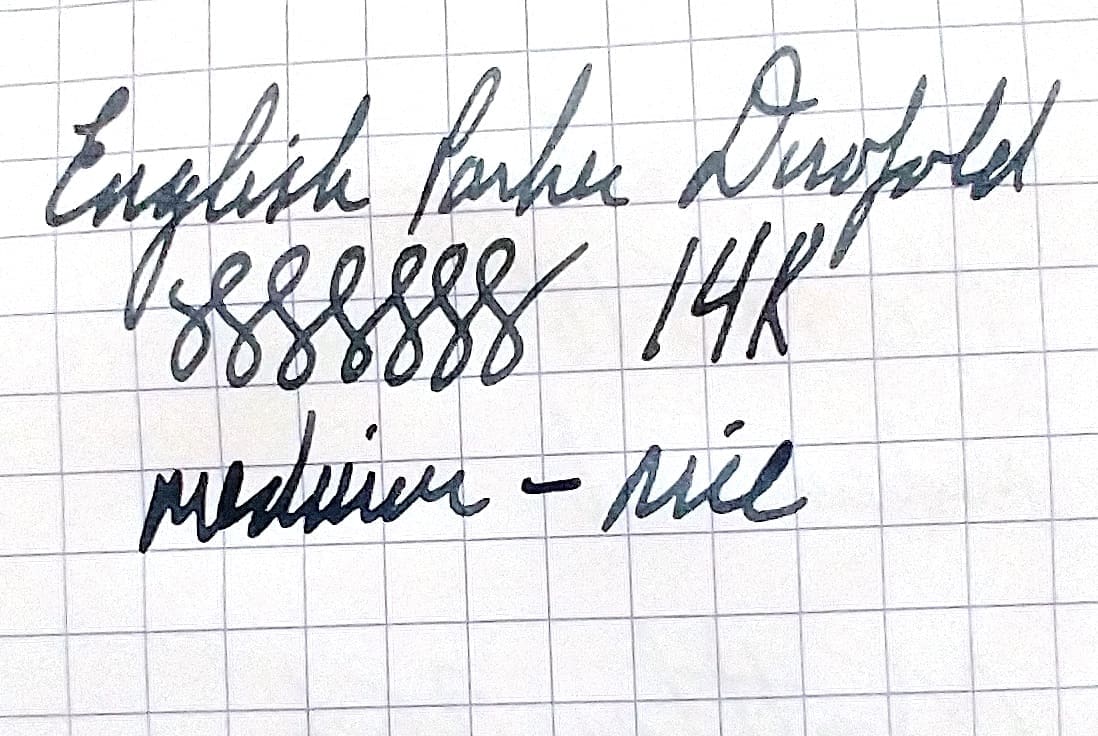 English Parker Duofold
8888888 14K
medium - nice